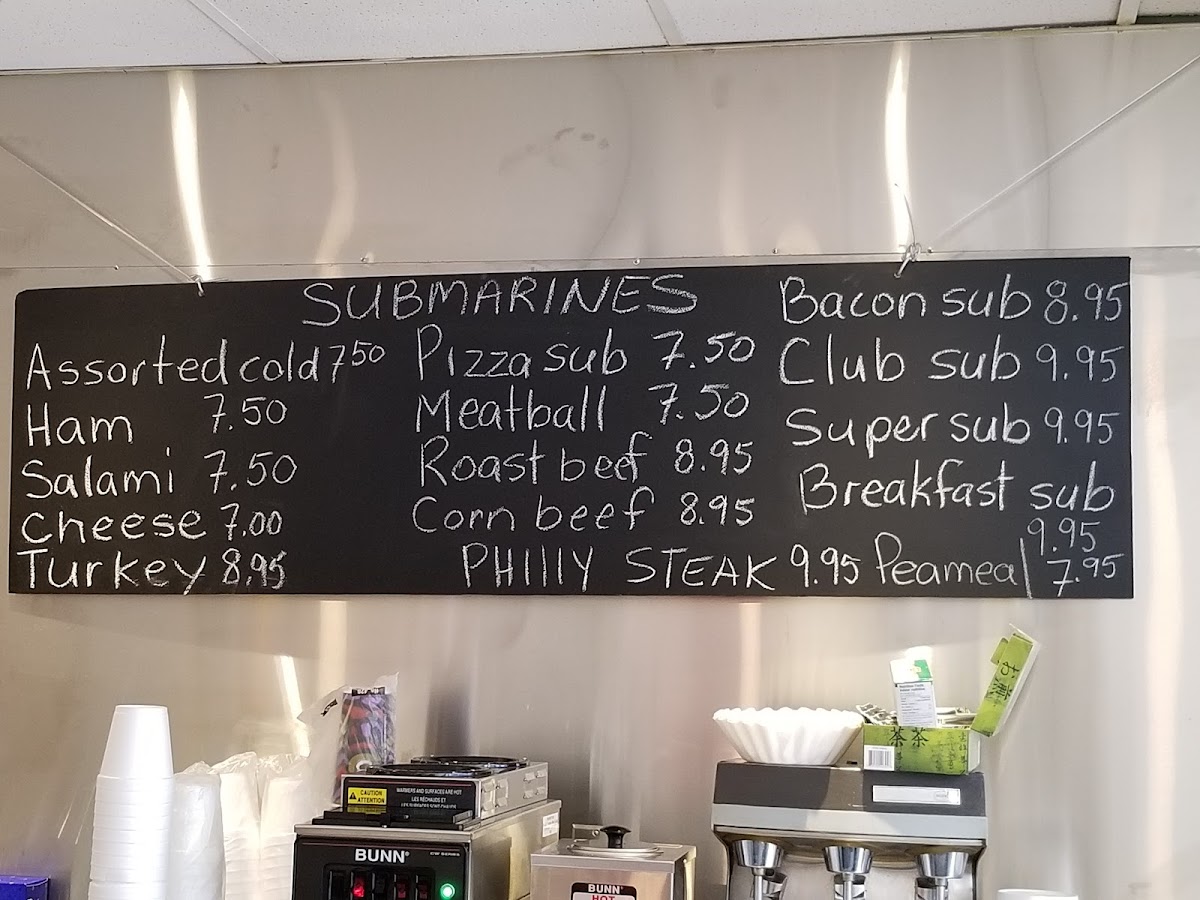 SUBMARINES
Assorted cold 7.50
Ham 7.50
Salami 7.50
Cheese 7.00
Turkey 8.95
Pizza sub 7.50
Meatball 7.50
Roast beef 8.95
Corn beef 8.95
PHIllY STEAK 9.95
Bacon sub 8.95
Club sub 9.95
Super sub 9.95
Breakfast sub
9.95
Peameal 7.95
CAUTION
ATTENTION
WARMERS AND SURFACES ARE HOT
LES RÉCHAUDS ET
BUNN®
BUNN®
HOT
茶茶